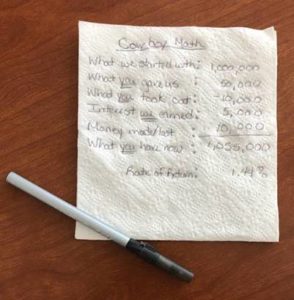 Cowboy Math
What we started with: 1,000,000
What you gave us : 50,000
What you took out: 10,000
Interest we earned: 5,000
Money made/lost : 10,000
What you have now : 1,055,000
Rate of Return: 1.44%